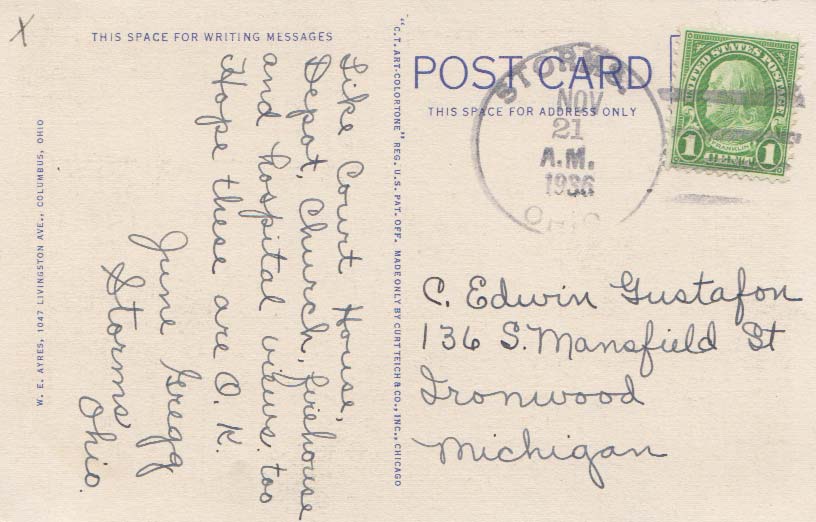 X
THIS SPACE FOR WRITING MESSAGES
Like Court House,
Depot, Church, firehouse
and hospital views too
Hope these are O. K.
June Gregg
Storms
Ohio.
W. E. AYRES, 1047 LIVINGSTON AVE., COLUMBUS, OHIO
"C.T. ART-COLORTONE" REG. U.S. PAT. OFF. MADE ONLY BY CURT TEICH & CO., INC., CHICAGO
POST CARD
THIS SPACE FOR ADDRESS ONLY
STORMS
NOV
21
A.M.
1936
OHIO
UNITED STATES POSTAGE
FRANKLIN
1 CENT 1
C. Edwin Gustafon
136 S. Mansfield St
Ironwood
Michigan